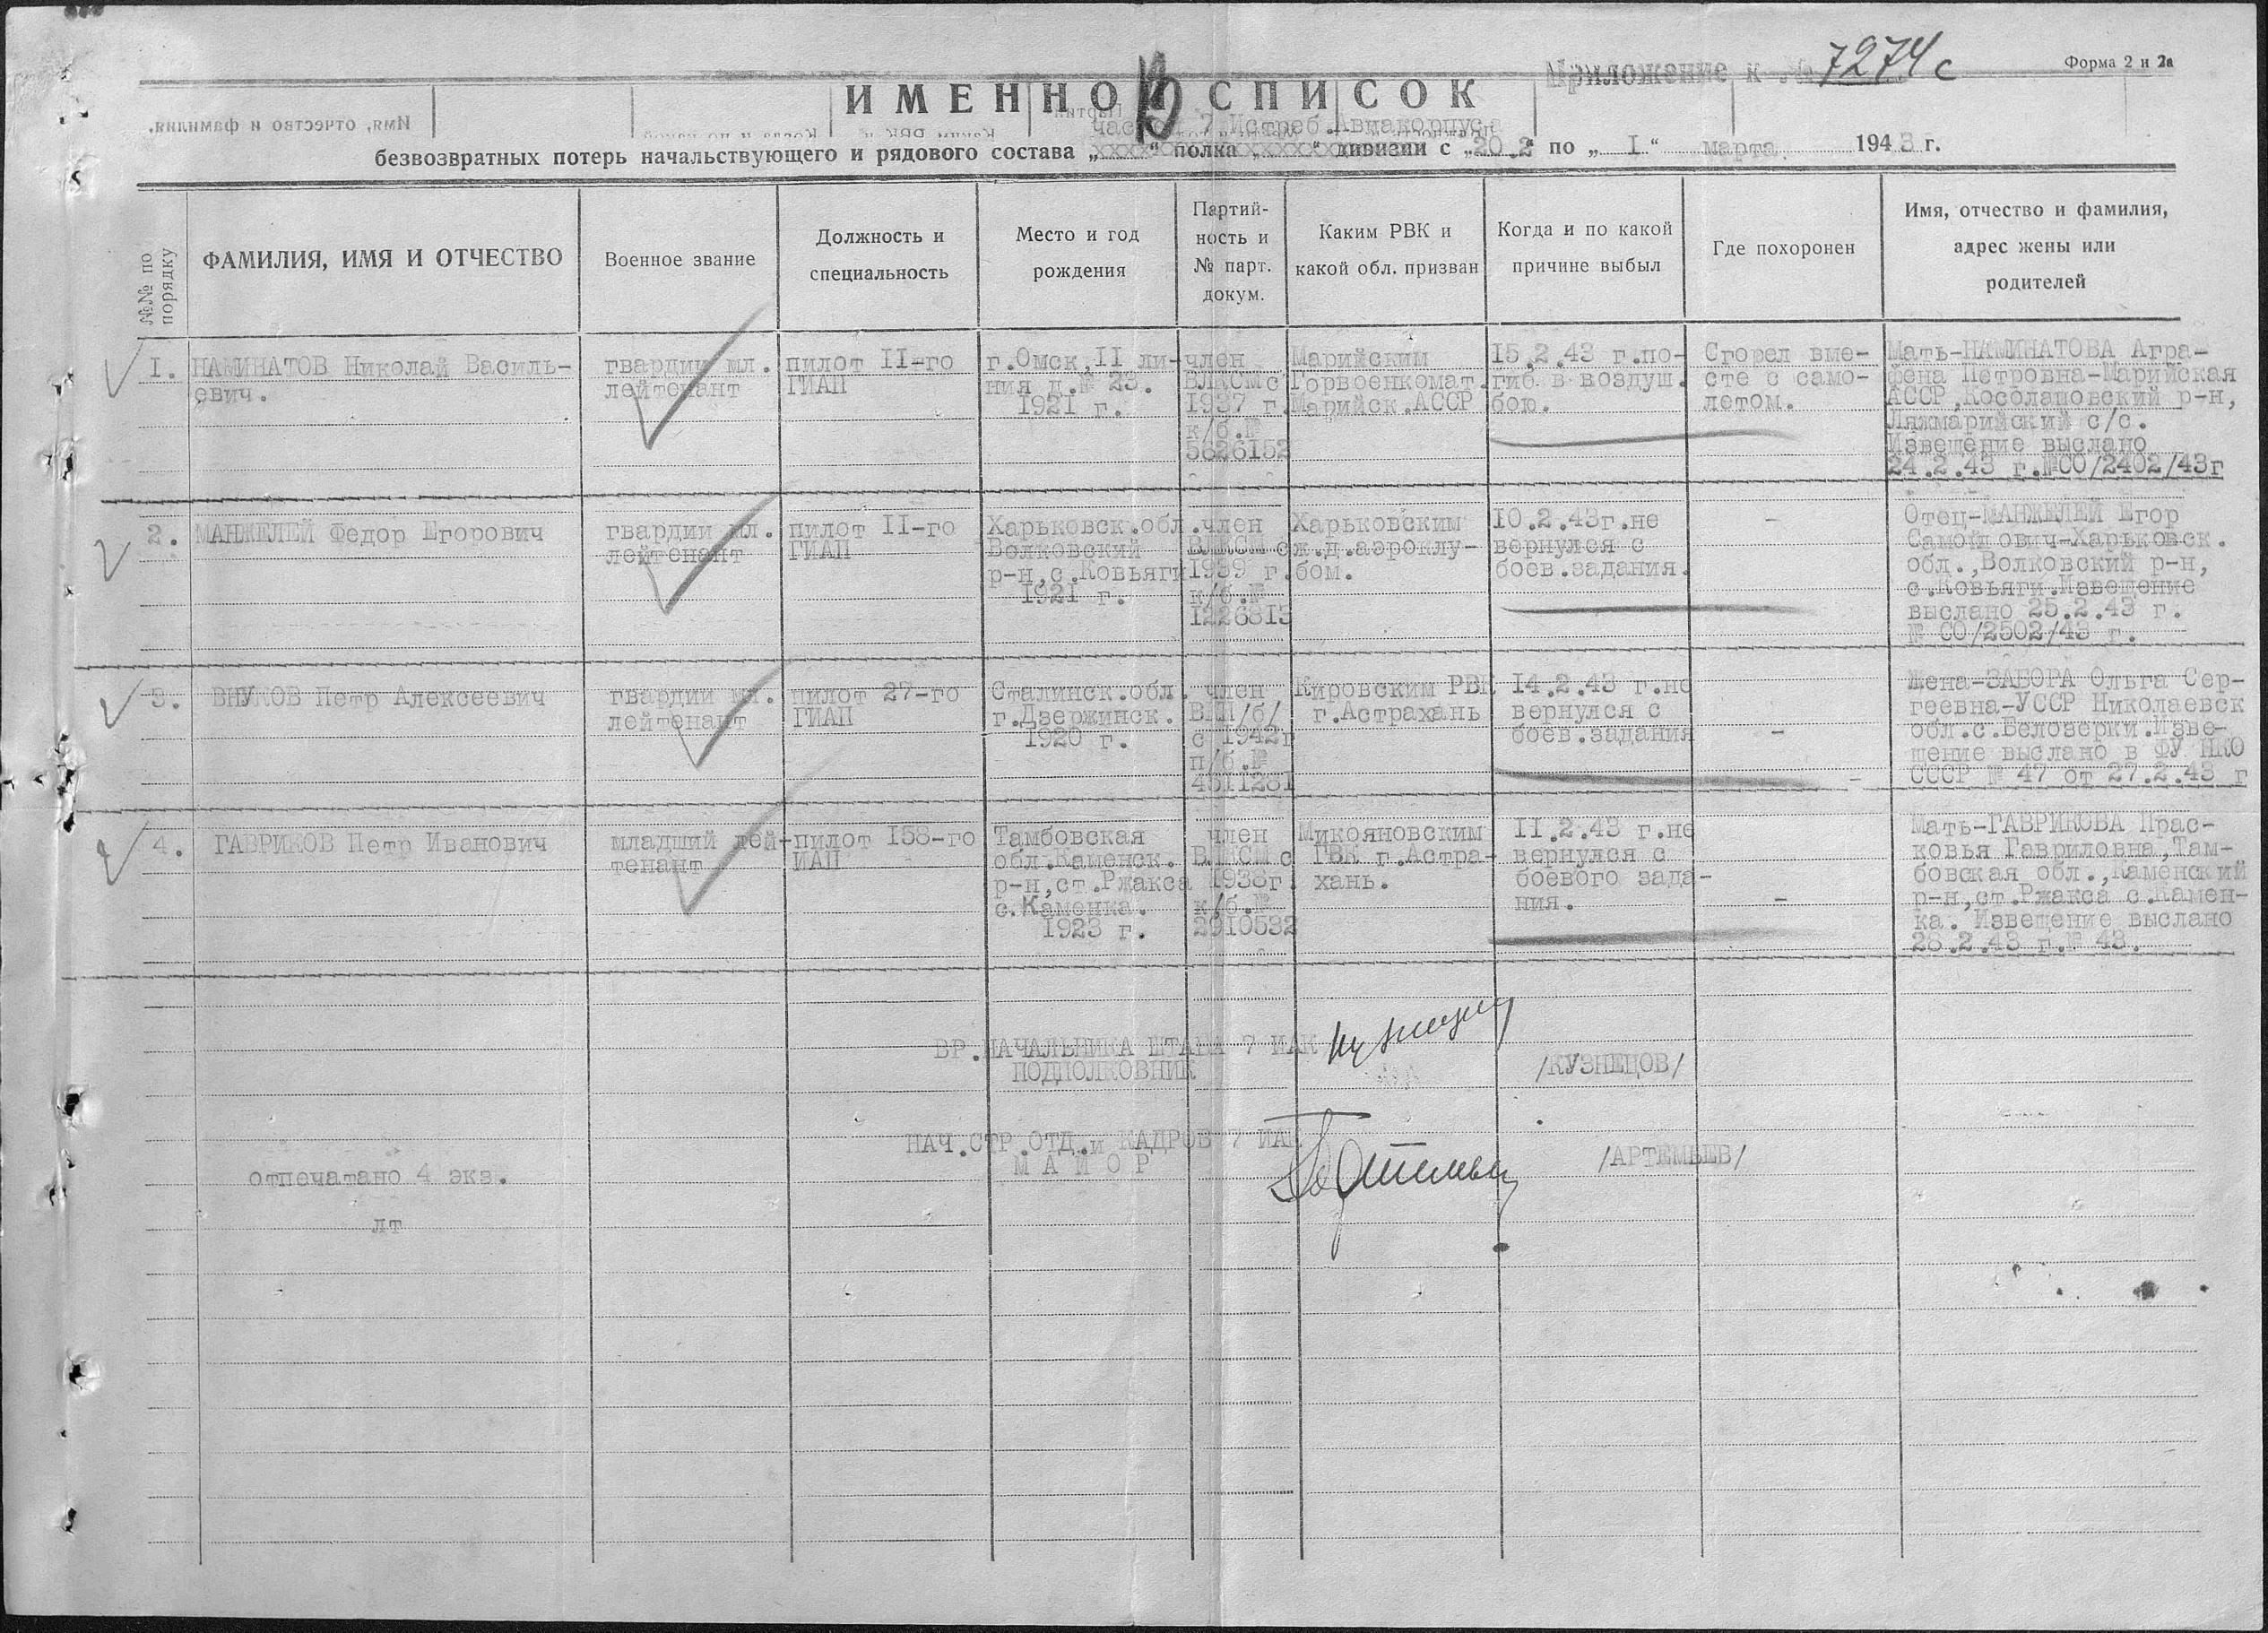 Приложение к № 7274с
Форма 2 и 2а
ИМЕННОЙ СПИСОК
Имя, отчество и фамилия,
части 7 Истреб.Авиакорпуса
безвозвратных потерь начальствующего и рядового состава „хххх“ полка „ “ дивизии с „20.2“ по „ I “ марта 1943 г.
№№ по порядку
ФАМИЛИЯ, ИМЯ И ОТЧЕСТВО
Военное звание
Должность и
специальность
Место и год
рождения
Партий-
ность и
№ парт.
докум.
Каким РВК и
какой обл. призван
Когда и по какой
причине выбыл
Где похоронен
Имя, отчество и фамилия,
адрес жены или
родителей
I.
НАМИНАТОВ Николай Василь-
евич.
гвардии мл.
лейтенант
пилот II-го
ГИАП
г.Омск,II ли-
ния д.№ 23.
1921 г.
член
ВЛКСМ с
1937 г.
к/б.№
5626152
Марийским
Горвоенкомат.
Марийск.АССР
15.2.43 г.по-
гиб в воздуш.
бою.
Сгорел вме-
сте с само-
летом.
Мать-НАМИНАТОВА Агра-
фена Петровна-Марийская
АССР,Косолаповский р-н,
Ляжмарийский с/с.
Извещение выслано
24.2.43 г.№СО/2402/43г
2.
МАНЖЕЛЕЙ Федор Егорович
гвардии мл.
лейтенант
пилот II-го
ГИАП
Харьковск.обл.
Волковский
р-н,с.Ковьяги
1921 г.
член
ВЛКСМ с
1939 г.
к/б.№
1226813
Харьковским
ж.д.аэроклу-
бом.
10.2.43г.не
вернулся с
боев.задания.
-
Отец-МАНЖЕЛЕЙ Егор
Самойлович-Харьковск.
обл.,Волковский р-н,
с.Ковьяги.Извещение
выслано 25.2.43 г.
№ СО/2502/43 г.
3.
ВНУКОВ Петр Алексеевич
гвардии мл.
лейтенант
пилот 27-го
ГИАП
Сталинск.обл.
г.Дзержинск.
1920 г.
член
ВКП/б/
с 1942г
п/б.№
4511281
Кировским РВК
г.Астрахань
14.2.43 г.не
вернулся с
боев.задания
-
Жена-ЗАБОРА Ольга Сер-
геевна-УССР Николаевск
обл.с.Белозерки.Изве-
щение выслано в ФУ НКО
СССР № 47 от 27.2.43 г
4.
ГАВРИКОВ Петр Иванович
младший лей-
тенант
пилот 158-го
ИАП
Тамбовская
обл.Каменск.
р-н,ст.Ржакса
с.Каменка.
1923 г.
член
ВЛКСМ с
1938г.
к/б.№
2910532
Микояновским
ГВК г.Астра-
хань.
11.2.43 г.не
вернулся с
боевого зада-
ния.
-
Мать-ГАВРИКОВА Прас-
ковья Гавриловна,Там-
бовская обл.,Каменский
р-н,ст.Ржакса с.Камен-
ка. Извещение выслано
28.2.43 г.№ 43.
ВР.НАЧАЛЬНИКА ШТАБА 7 ИАК
ПОДПОЛКОВНИК
/КУЗНЕЦОВ/
НАЧ.СТР.ОТД.и КАДРОВ 7 ИАК
МАЙОР
/АРТЕМЬЕВ/
отпечатано 4 экз.
лт